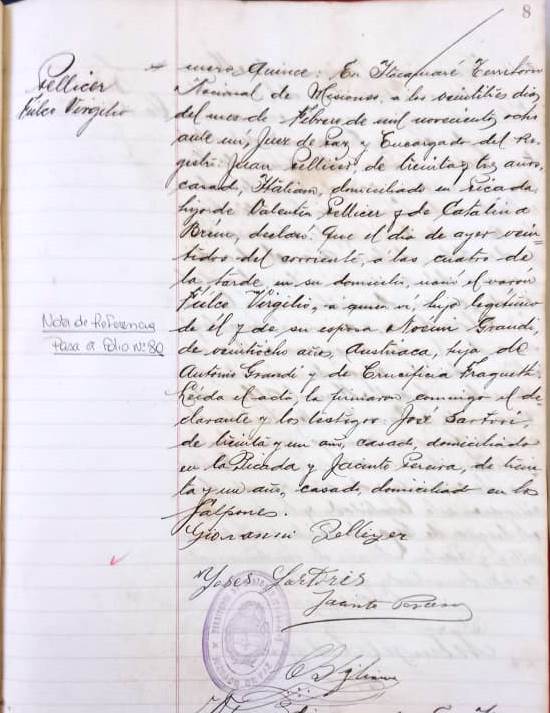 8
Pellicer
Fulco Virgilio
mero Quince: En Itacaruaré Territorio
Nacional de Misiones, a los veintitres dias
del mes de Febrero de mil novecientos ocho
ante mí, Juez de Paz y Encargado del Re-
gistro Juan Pellicer, de treinta y tres años,
casado, Italiano, domiciliado en Picada,
hijo de Valentin Pellicer y de Catalina
declaró: Que el dia de ayer vein-
tidos del corriente, a las cuatro de
la tarde en su domicilio, nació el varón
Fulco Virgilio, a quien ví hijo legítimo
de él y de su esposa Noémi Grandi,
de veintiocho años, Austriaca, hija de
Antonio Grandi y de Crucificia
Leida el acta, la firmaron conmigo el de-
clarante y los testigos José Sartori,
de treinta y un años, casado, domiciliado
en la Picada y Jacinto Pereira, de trein-
ta y un años, casado, domiciliado en los
Galpones.
Nota de Referencia
Pasa a folio Nº 80
Giovanni Pellizer
Sartoris
Jacinto Pereira